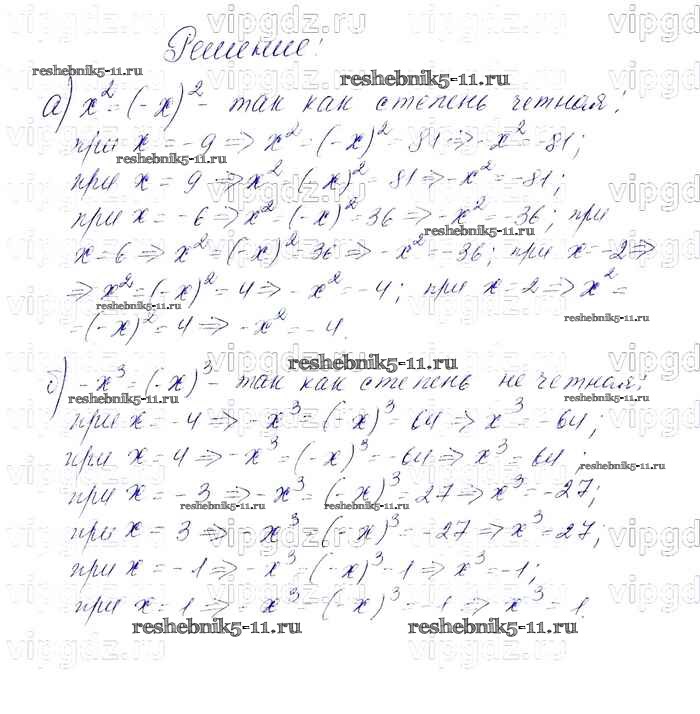 Решение:
reshebnik5-11.ru reshebnik5-11.ru
а) x² = (-x)² - так как степень четная;
при x = -9 => x² = (-x)² = 81 => -x² = -81;
reshebnik5-11.ru
при x = 9 => x² = (-x)² = 81 => -x² = -81;
при x = -6 => x² = (-x)² = 36 => -x² = -36; при
reshebnik5-11.ru
x = 6 => x² = (-x)² = 36 => -x² = -36; при x = -2 =>
=> x² = (-x)² = 4 => -x² = -4; при x = 2 => x² =
reshebnik5-11.ru reshebnik5-11.ru
= (-x)² = 4 => -x² = -4.
reshebnik5-11.ru
б) -x³ = (-x)³ - так как степень не четная;
reshebnik5-11.ru reshebnik5-11.ru
при x = -4 => -x³ = (-x)³ = 64 => x³ = -64;
при x = 4 => -x³ = (-x)³ = -64 => x³ = 64;
reshebnik5-11.ru
при x = -3 => -x³ = (-x)³ = 27 => x³ = -27;
reshebnik5-11.ru reshebnik5-11.ru
при x = 3 => -x³ = (-x)³ = -27 => x³ = 27;
при x = -1 => -x³ = (-x)³ = 1 => x³ = -1;
при x = 1 => -x³ = (-x)³ = -1 => x³ = 1.
reshebnik5-11.ru reshebnik5-11.ru
vipgdz.ru